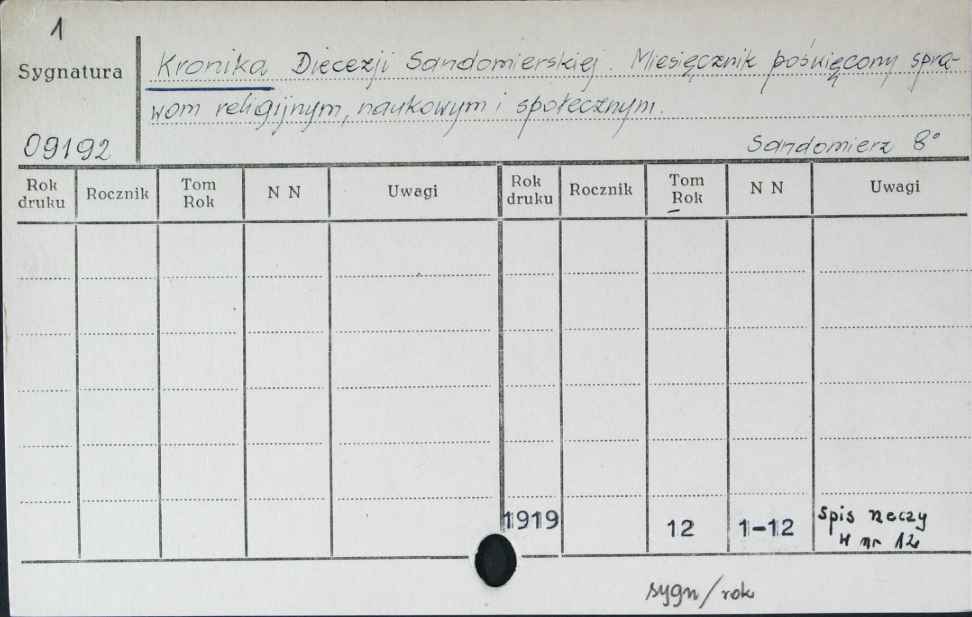 1
Sygnatura
Kronika Diecezji Sandomierskiej. Miesięcznik poświęcony spra-
wom religijnym, naukowym i społecznym.
09192
Sandomierz 8°
Rok druku Rocznik Tom Rok N N Uwagi Rok druku Rocznik Tom Rok N N Uwagi
1919 12 1-12 spis rzeczy
w nr 12
sygn/rok